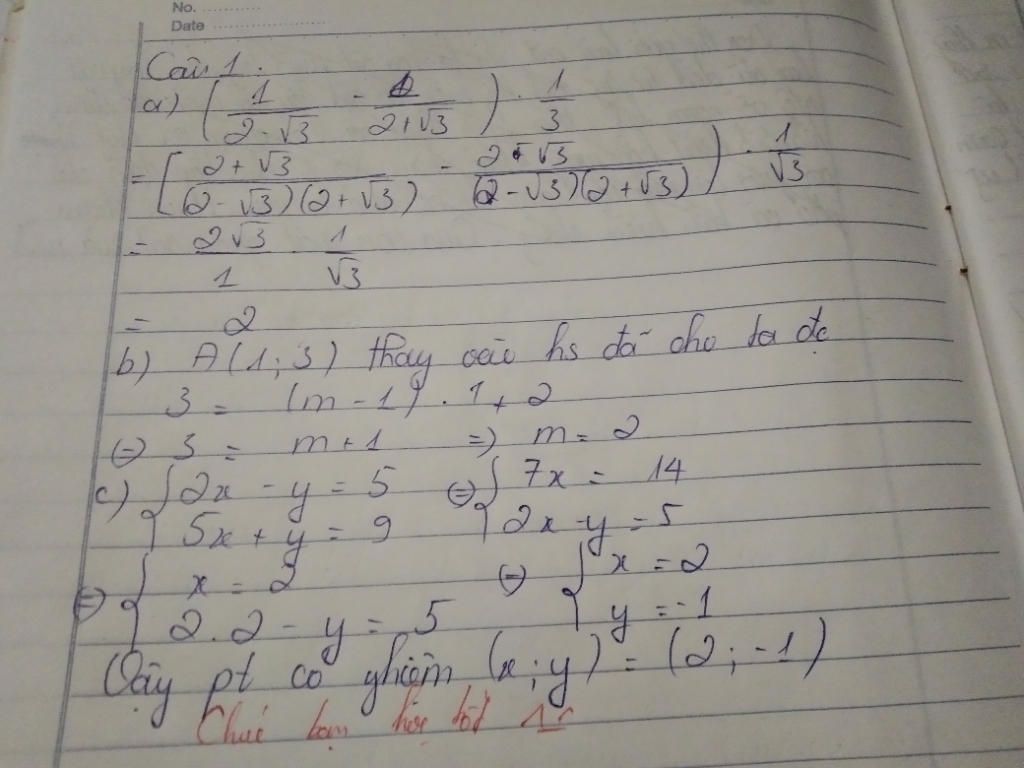 No. ............
Date ........................
Câu 1.
a) ( 1/(2-√3) - 1/(2+√3) ) . 1/3
= [ (2+√3)/((2-√3)(2+√3)) - (2-√3)/((2-√3)(2+√3)) ) . 1/√3
= 2√3/1 . 1/√3
= 2
b) A(1;3) thay vào hs đã cho ta đc
3 = (m-1).1+2
⇔ 3 = m+1 ⇒ m=2
c) { 2x-y=5 ; 5x+y=9 ⇔ { 7x=14 ; 2x-y=5
⇔ { x=2 ; 2.2-y=5 ⇔ { x=2 ; y=-1
Vậy pt có nghiệm (x;y)=(2;-1)
Chúc bạn học tốt